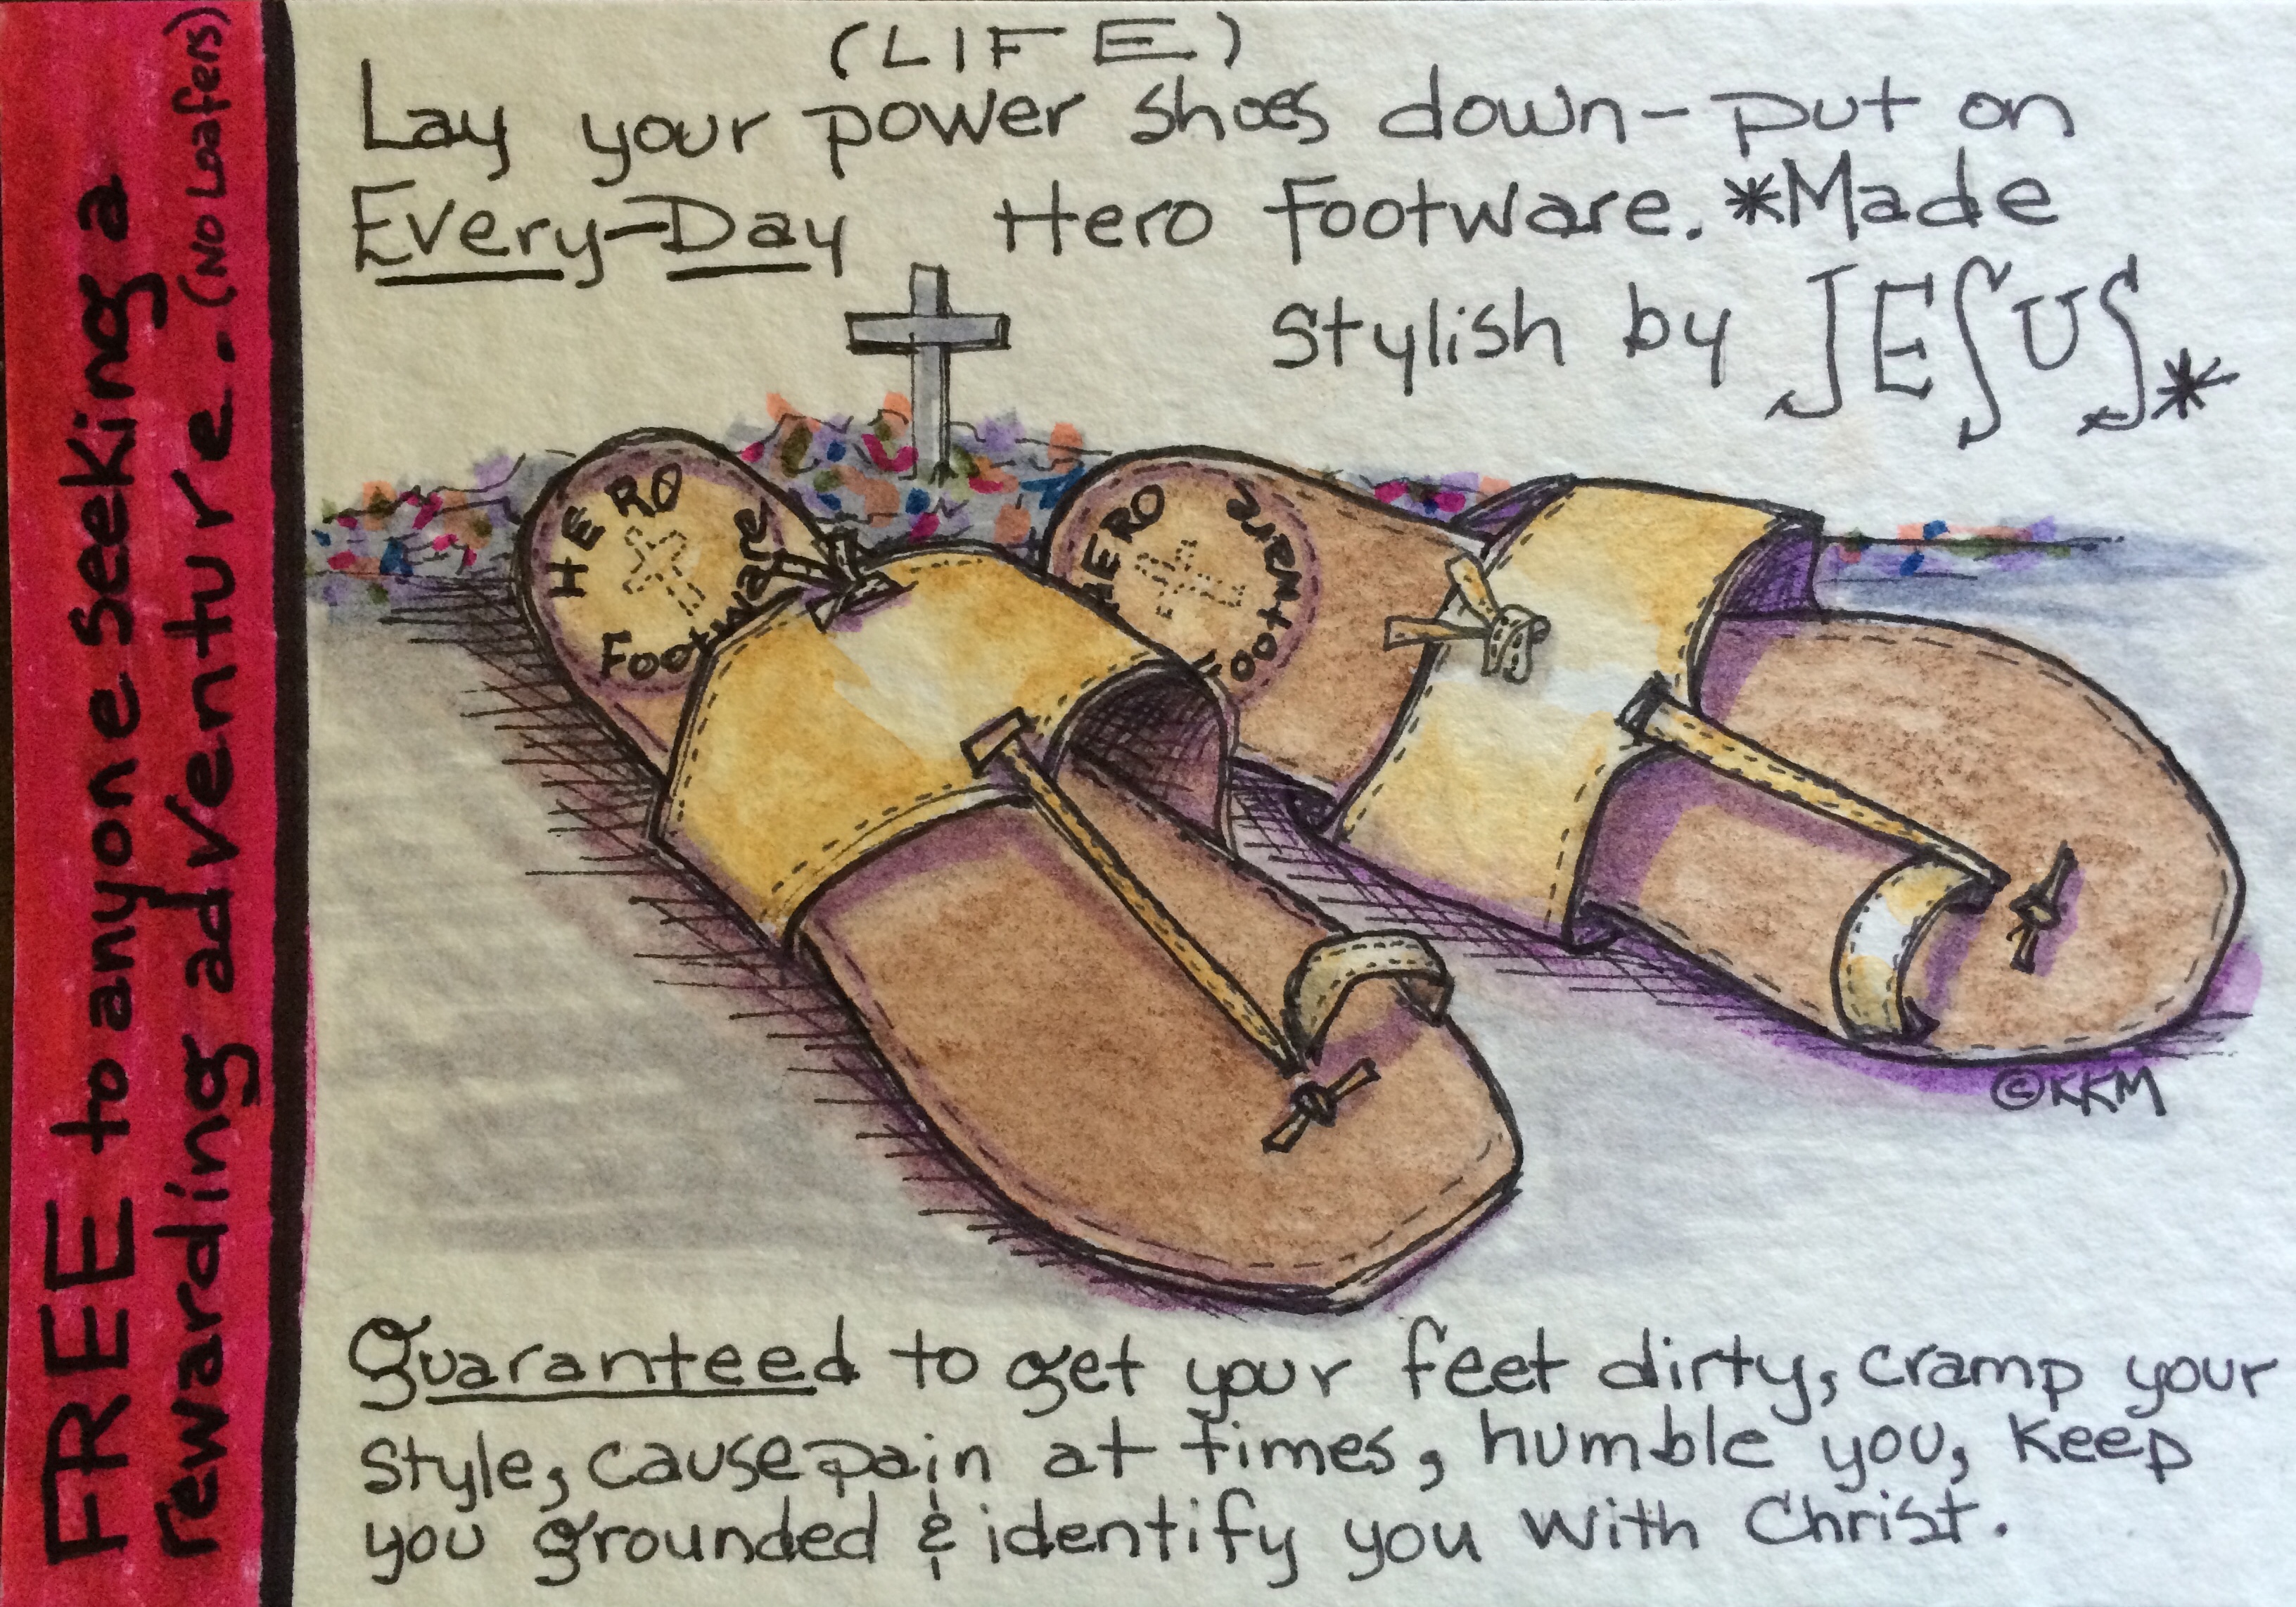 FREE to anyone seeking a
rewarding adventure. (No Loafers)
(LIFE)
Lay your power shoes down- put on
Every-Day Hero Footware. *Made
stylish by JESUS*
HERO
Footware
HERO
Footware
©KKM
Guaranteed to get your feet dirty, cramp your
style, cause pain at times, humble you, keep
you grounded & identify you with Christ.